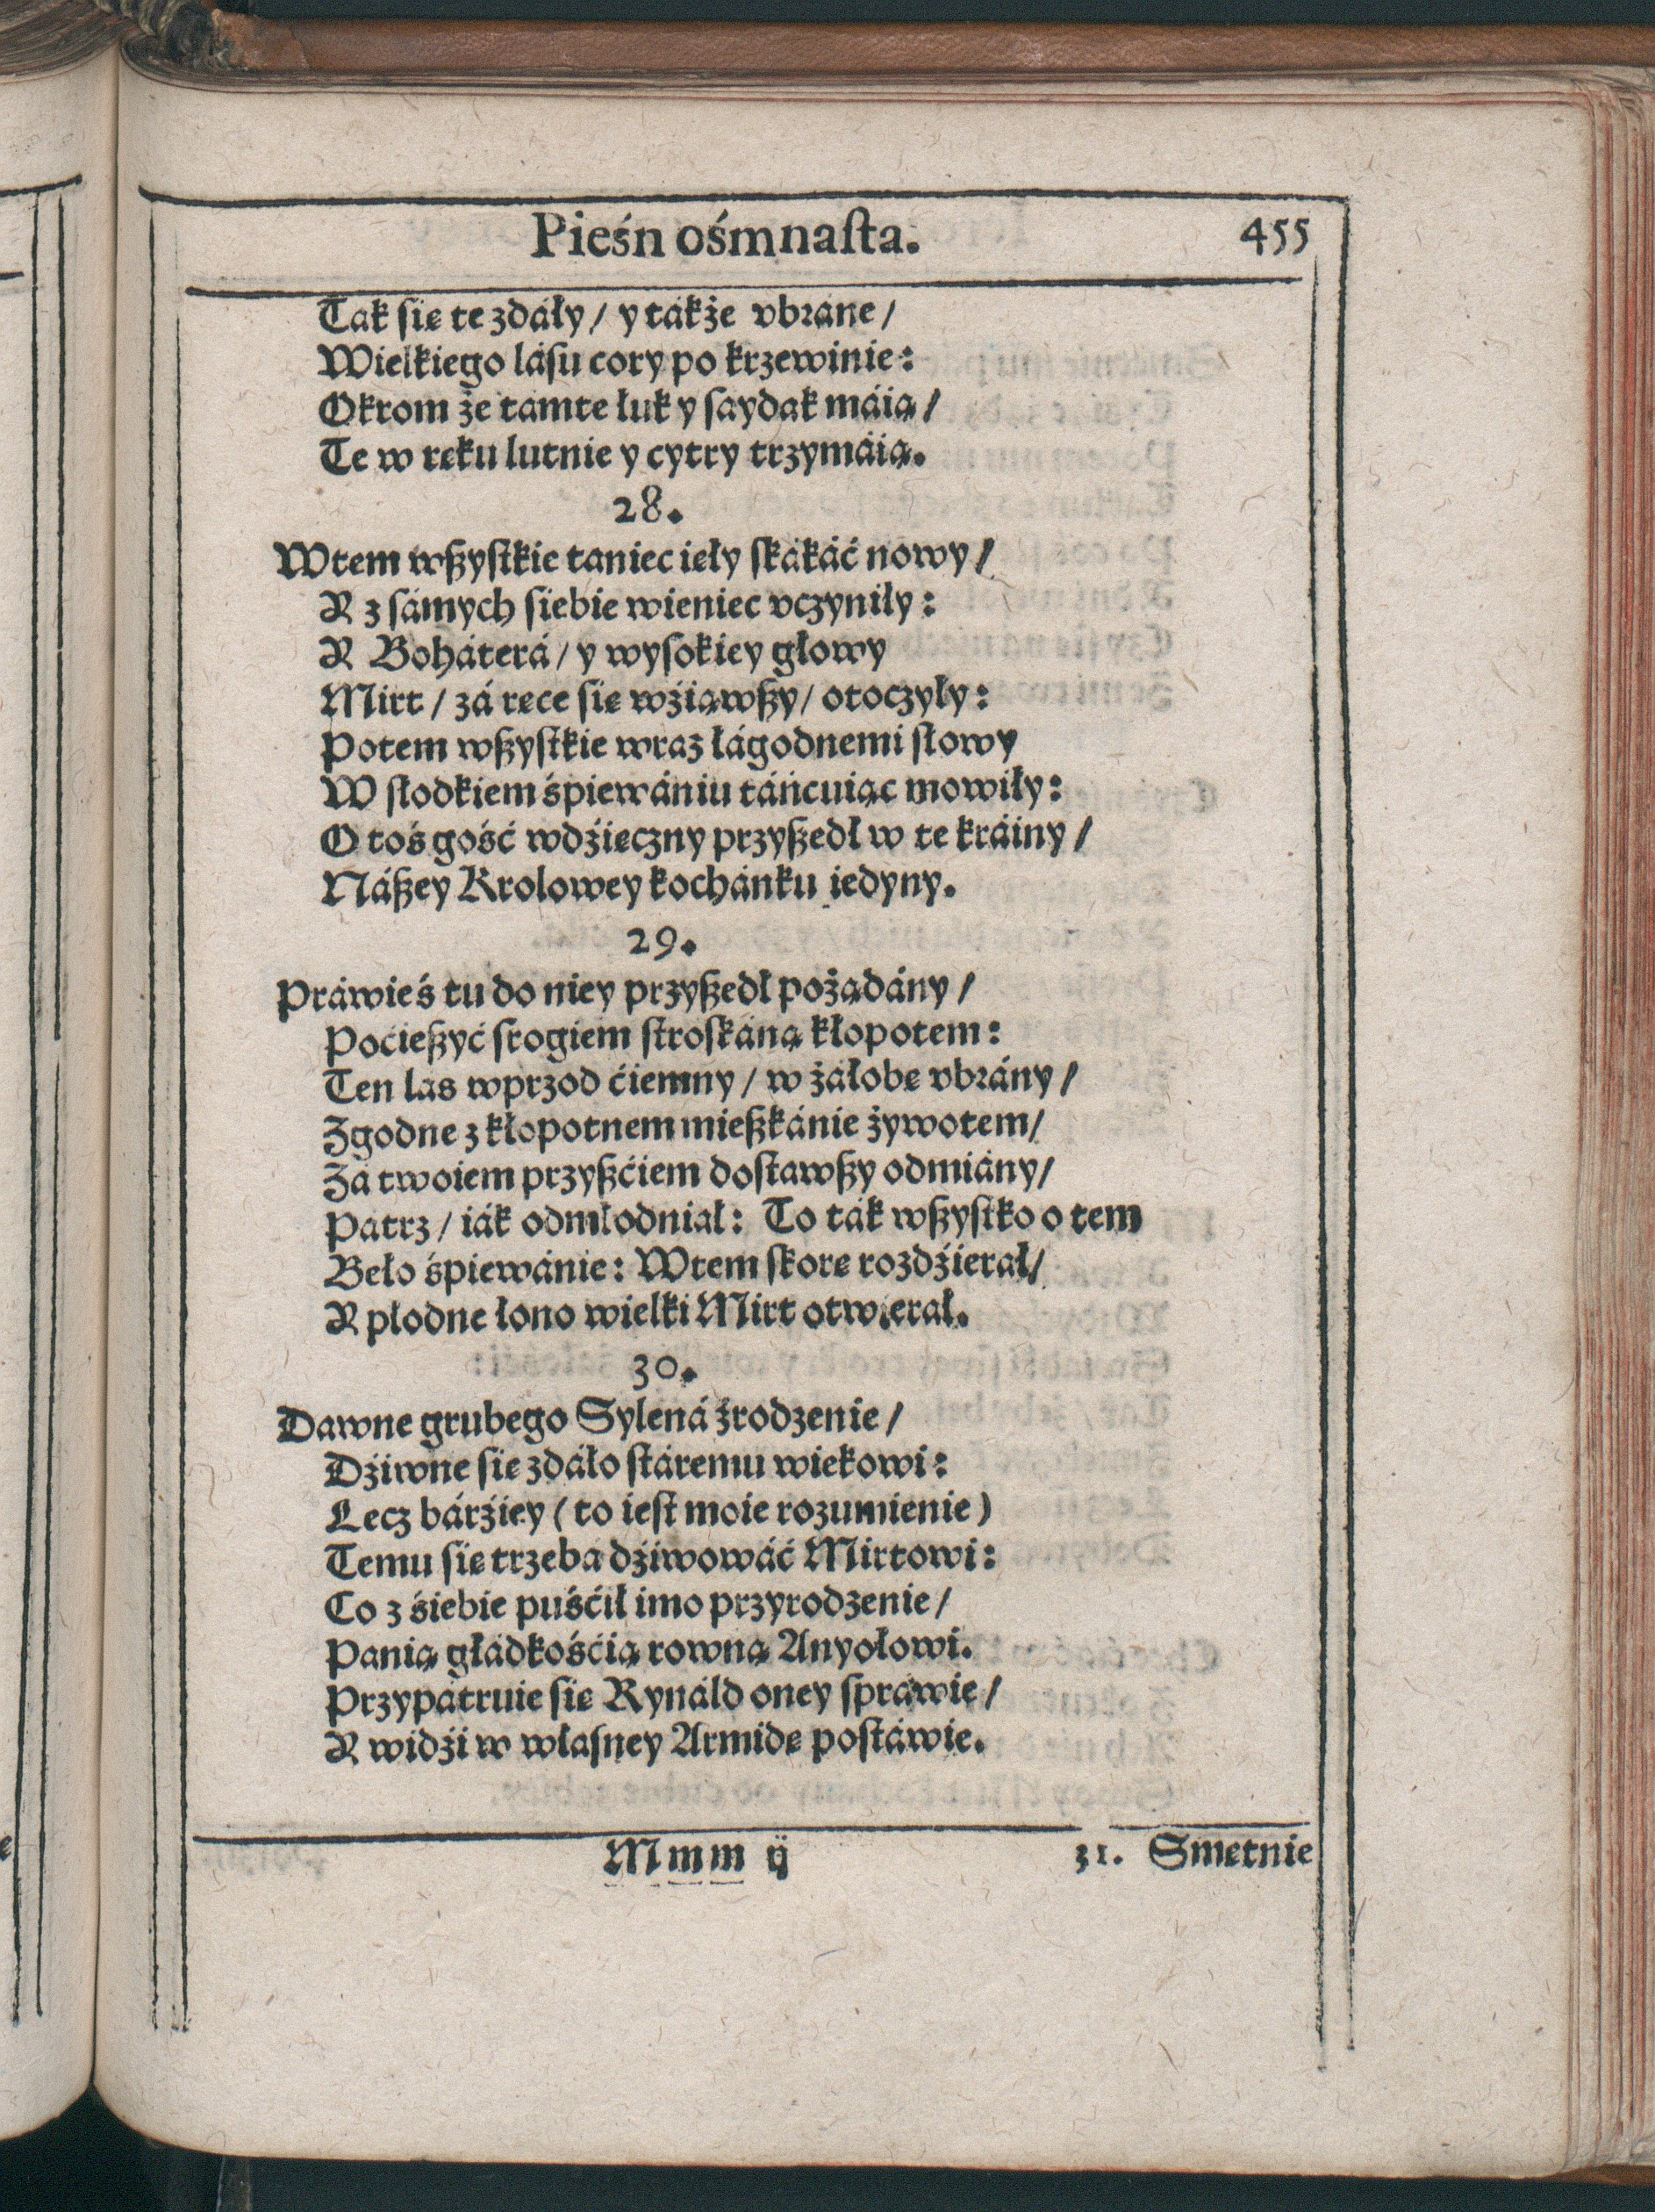 Pieśn ośmnaſta. 455
Tak ſię te zdáły/ y tákże vbráne/
Wielkiego láſu cory po krzewinie:
Okrom że tamte łuk y ſaydak máią/
Te w ręku lutnie y cytry trzymáią.
28.
Wtem wßyſtkie taniec ięły ſkákáć nowy/
A z ſámych ſiebie wieniec vczyniły:
A Boháterá/ y wyſokiey głowy
Mirt/ zá ręce ſię wźiąwßy/ otoczyły:
Potem wßyſtkie wraz łágodnemi ſłowy
W ſłodkiem śpiewániu táńcuiąc mowiły:
O toś gość wdźięczny przyßedł w te kráiny/
Náßey Krolowey kochánku iedyny.
29.
Práwieś tu do niey przyßedł pożądány/
Poćießyć ſrogiem ſtroſkáną kłopotem:
Ten las wprzod ćiemny/ w żałobę vbrány/
Zgodne z kłopotnem mießkánie żywotem/
Zá twoiem przyßćiem doſtawßy odmiány/
Patrz/ iák odmłodniał: To ták wßyſtko o tem
Beło śpiewánie: Wtem ſkorę rozdźierał/
A płodne łono wielki Mirt otwierał.
30.
Dawne grubego Sylená źrodzenie/
Dźiwne ſię zdáło ſtáremu wiekowi:
Lecz bárźiey (to ieſt moie rozumienie)
Temu ſię trzeba dźiwowáć Mirtowi:
Co z śiebie puśćił imo przyrodzenie/
Panią głádkośćią rowną Anyołowi.
Przypátruie ſię Rynáld oney ſpráwie/
A widźi w własney Armidę poſtáwie.
Mmm ij 31. Smętnie